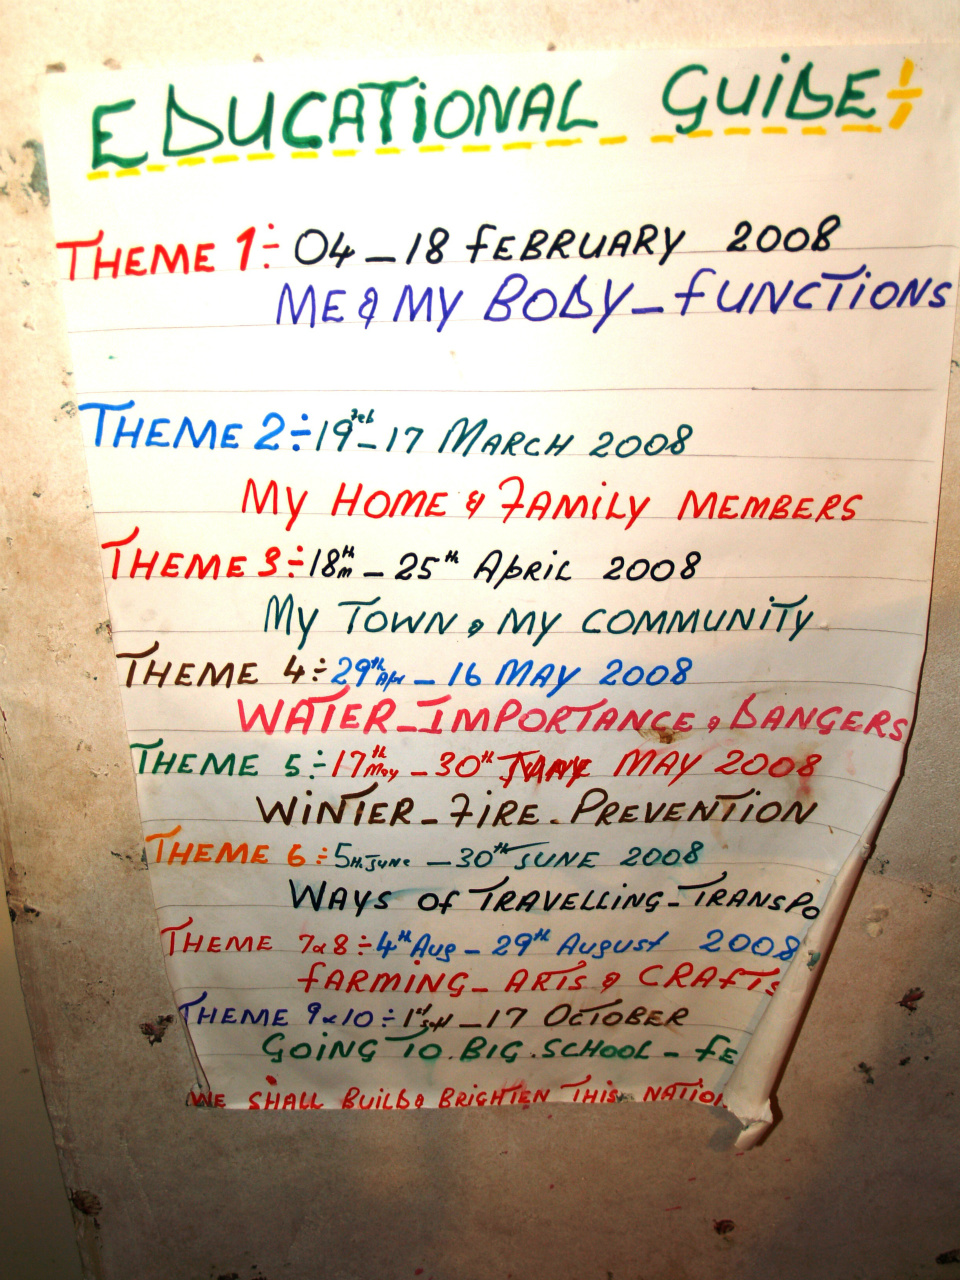 EDUCATIONAL GUIDE÷
THEME 1÷ 04 – 18 FEBRUARY 2008
ME & MY BODY – FUNCTIONS
THEME 2÷ 19 Feb – 17 MARCH 2008
MY HOME & FAMILY MEMBERS
THEME 3÷ 18th m – 25th APRIL 2008
MY TOWN & MY COMMUNITY
THEME 4÷ 29th Apr – 16 MAY 2008
WATER – IMPORTANCE & DANGERS
THEME 5÷ 17th May – 30th MAY 2008
WINTER – FIRE. PREVENTION
THEME 6÷ 5th June – 30th JUNE 2008
WAYS OF TRAVELLING – TRANSPO
THEME 7&8÷ 4th Aug – 29th August 2008
FARMING – ARTS & CRAFTS
THEME 9&10÷ 1st Sept – 17 OCTOBER
GOING TO. BIG. SCHOOL – FE
WE SHALL BUILD & BRIGHTEN THIS NATION